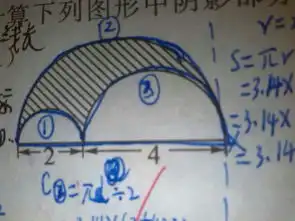 算下列图形中阴影部分
②
③
①
2
4
r=
S=πr
=3.14×
=3.14×
=3.14
C②=πd÷2